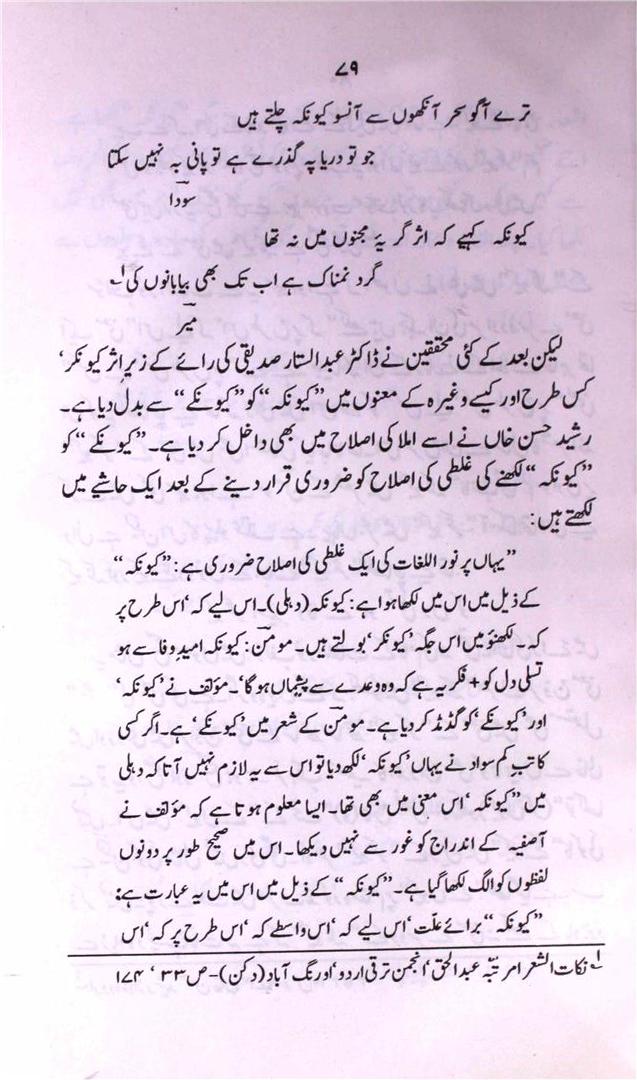 ۷۹
ترے آگو سحر آنکھوں سے آنسو کیونکہ چلتے ہیں
جو تو دریا پہ گذرے ہے تو پانی بہ نہیں سکتا
سودا
کیونکہ کہیے کہ اثر گریۂ مجنوں میں نہ تھا
گرد نمناک ہے اب تک بھی بیابانوں کی ۱؎
میر
لیکن بعد کے کئی محققین نے ڈاکٹر عبدالستار صدیقی کی رائے کے زیر اثر کیونکر،
کس طرح اور کیسے وغیرہ کے معنوں میں ”کیونکہ“ کو ”کیونکے“ سے بدل دیا ہے۔
رشید حسن خاں نے اسے املا کی اصلاح میں بھی داخل کر دیا ہے۔ ”کیونکے“ کو
”کیونکہ“ لکھنے کی غلطی کی اصلاح کو ضروری قرار دینے کے بعد ایک حاشیے میں
لکھتے ہیں:
”یہاں پر نور اللغات کی ایک غلطی کی اصلاح ضروری ہے: ”کیونکہ“
کے ذیل میں اس میں لکھا ہوا ہے: کیونکہ (دہلی)۔ اس لیے کہ، اس طرح پر
کہ۔ لکھنؤ میں اس جگہ ’کیونکر‘ بولتے ہیں۔ مومنؔ: کیونکہ امیدِ وفا سے ہو
تسلی دل کو + فکر یہ ہے کہ وہ وعدے سے پشیماں ہوگا‘۔ مؤلف نے ’کیونکہ‘
اور ’کیونکے‘ کو گڈمڈ کر دیا ہے۔ مومنؔ کے شعر میں ’کیونکے‘ ہے۔ اگر کسی
کاتبِ کم سواد نے یہاں ’کیونکہ‘ لکھ دیا تو اس سے یہ لازم نہیں آتا کہ دہلی
میں ”کیونکہ‘ اس معنی میں بھی تھا۔ ایسا معلوم ہوتا ہے کہ مؤلف نے
آصفیہ کے اندراج کو غور سے نہیں دیکھا۔ اس میں صحیح طور پر دونوں
لفظوں کو الگ لکھا گیا ہے۔ ”کیونکہ“ کے ذیل میں اس میں یہ عبارت ہے:
”کیونکہ“ برائے علّت‘ اس لیے کہ‘ اس واسطے کہ‘ اس طرح پر کہ‘ اس
۱؎ نکات الشعرا مرتبّہ عبدالحق‘ انجمن ترقی اردو‘ اورنگ آباد (دکن)۔ ص ۳۳‘ ۱۷۴